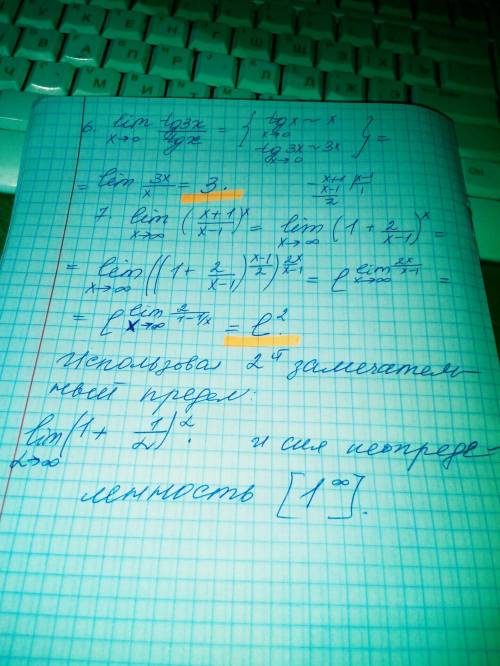 6. lim x→0 tg3x/tgx = { tgx ~ x x→0 tg3x ~ 3x x→0 } =
= lim x→0 3x/x = 3.
x+1 | x-1
x-1 | 1
2
7. lim x→∞ (x+1/x-1)^x = lim x→∞ (1 + 2/x-1)^x =
= lim x→∞ ((1 + 2/x-1)^(x-1/2))^(2x/x-1) = e^(lim x→∞ 2x/x-1) =
= e^(lim x→∞ 2/1-1/x) = e^2.
Использовал 2й замечатель-
ный предел:
lim α→∞ (1 + 1/α)^α. и
неопреде-
ленность [1^∞].